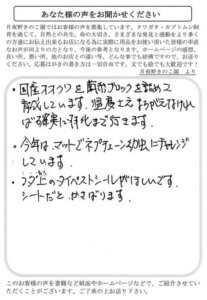 あなた様の声をお聞かせください
月夜野きのこ園ではお客様の声を募集しています。クワガタ・カブトムシ飼
育を通じて、自然との共生、命の大切さ、さまざまな発見と感動をより多く
の方達にお伝え出来るお店になる為に実際に用品をお使い頂いた皆様の率直
なお声が何よりの力となり、今後の参考となります。ホームページの感想、
良い所、悪い所、他のお店との違い等、どんな事でも結構ですので、お送り
ください。応募はがきの書き方は一切自由です。文でも絵でも大歓迎です！
月夜野きのこ園 より
・国産オオクワを菌糸ブロックを詰めて
育成しています。温度さえまちがえなければ
ほぼ確実に羽化まで行きます。
・今年はマットでネプチューン幼虫にチャレンジ
しています。
・フタ上のタイベストシールがほしいです。
シートだとかさばります。
このお客様の声を書籍など紙面やホームページなどで、ご紹介させてい
ただくことがございます。ご了承の上お送り下さい。